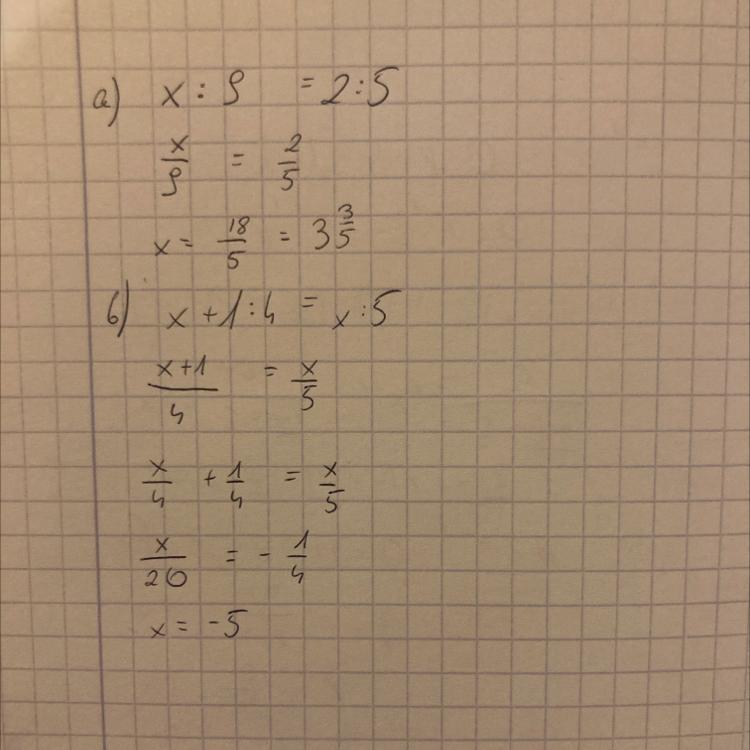 a) x : 9 = 2 : 5
x/9 = 2/5
x = 18/5 = 3 3/5
б) x + 1 : 4 = x : 5
x+1/4 = x/5
x/4 + 1/4 = x/5
x/20 = - 1/4
x = -5